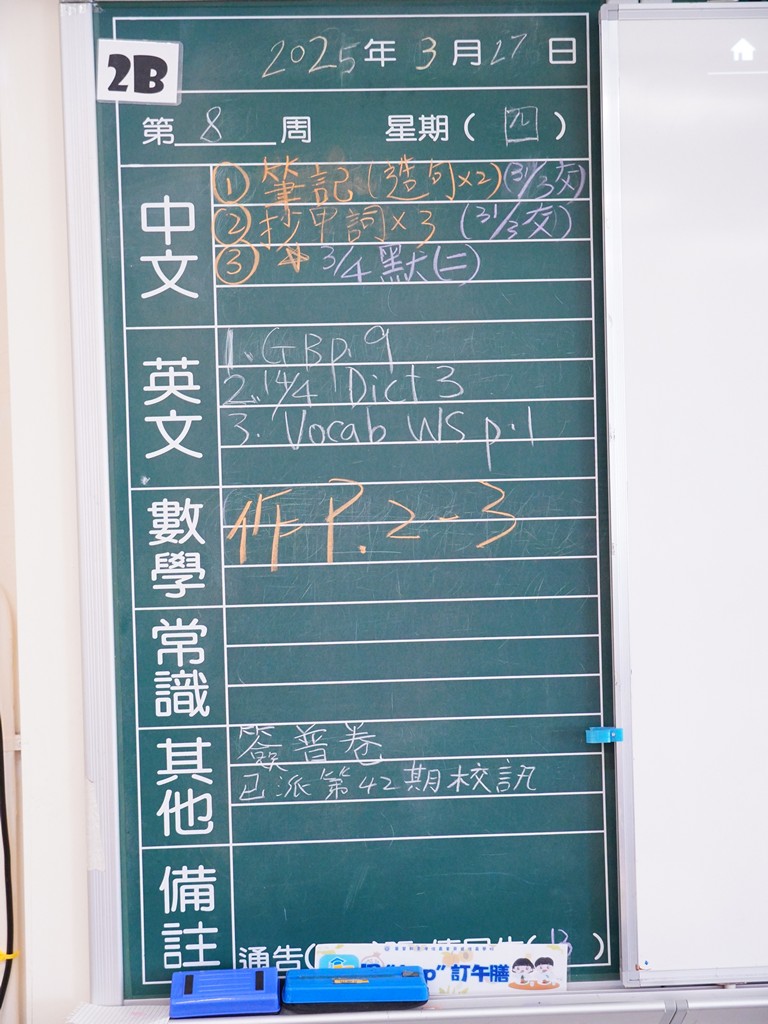 2B
2025年3月27日
第8周 星期(四)
中文
① 筆記(造句×2)(31/3交)
② 抄中詞×3 (31/3交)
③ ☆ 3/4 默(二)
英文
1. GB p.9
2. 14/4 Dict 3
3. Vocab WS p.1
數學
作 P.2-3
常識
其他
簽普卷
已派第42期校訊
備註
通告( )
"App"訂午膳